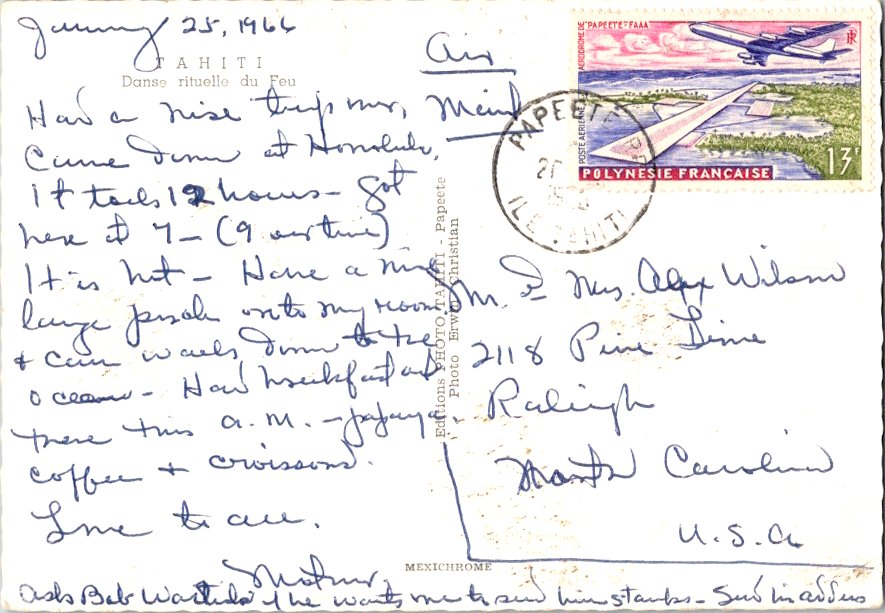 January 25, 1966
TAHITI
Danse rituelle du Feu
Air
Mail
Had a nise trip over,
Came down at Honolulu,
It took 12 hours - Got
here at 7 - (9 our time)
It is hot - Have a nice
large porch onto my room
& can walk down to the
ocean - Had breakfast out
there this a.m. - papaya,
coffee & croissons.
Love to all,
Mother
Ask Bob if he wants me to send him stamps - Send in address
Editions PHOTO TAHITI - Papeete
Photo Erwin Christian
MEXICHROME
Mr. & Mrs. Alex Wilson
2118 Pine Drive
Raleigh
North Carolina
U.S.A
AÉRODROME DE PAPEETE-FAAA
POSTE AÉRIENNE
RF
13F
POLYNESIE FRANÇAISE
PAPEETE
ILE TAHITI